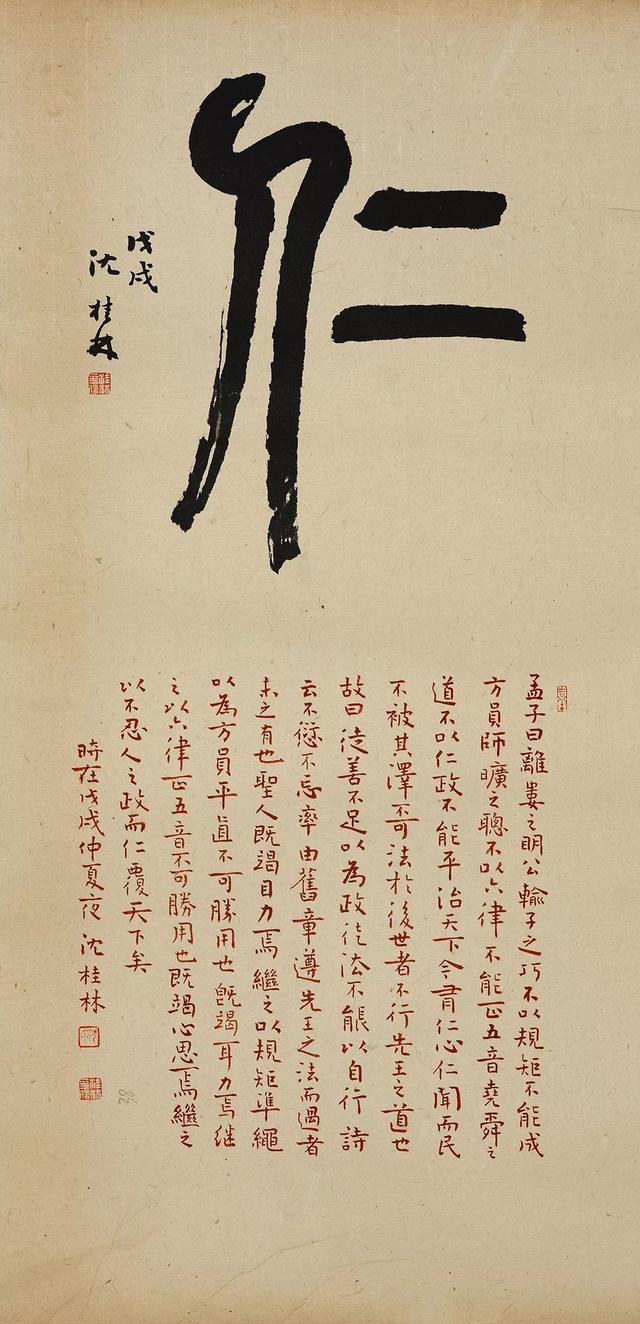 仁
戊戌
沈桂林
孟子曰離婁之明公輸子之巧不以規矩不能成
方員師曠之聰不以六律不能正五音堯舜之
道不以仁政不能平治天下今有仁心仁聞而民
不被其澤不可法於後世者不行先王之道也
故曰徒善不足以為政徒法不能以自行詩
云不愆不忘率由舊章遵先王之法而過者
未之有也聖人既竭目力焉繼之以規矩準繩
以為方員平直不可勝用也既竭耳力焉继
之以六律正五音不可勝用也既竭心思焉繼之
以不忍人之政而仁覆天下矣
時在戊戌仲夏夜沈桂林